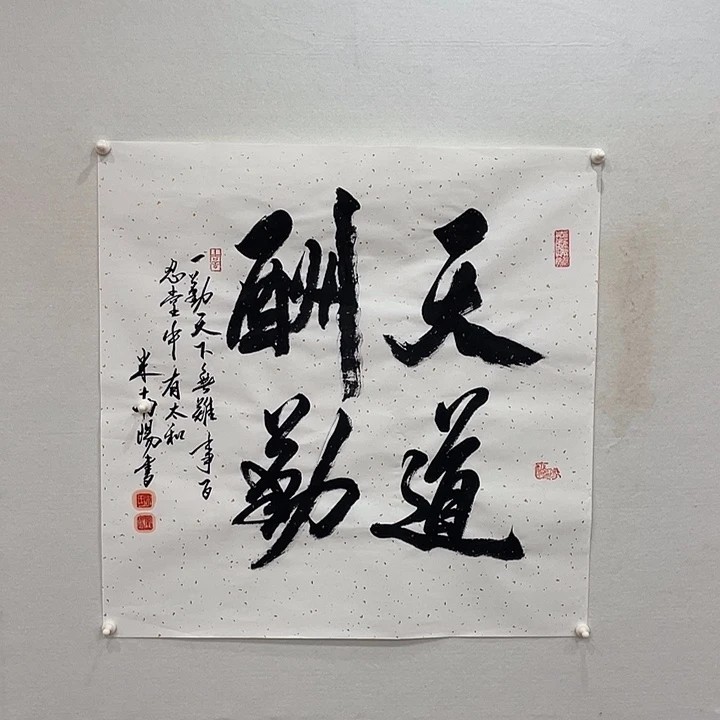 天道
酬勤
一勤天下無難事百
忍堂中有太和
米南陽書